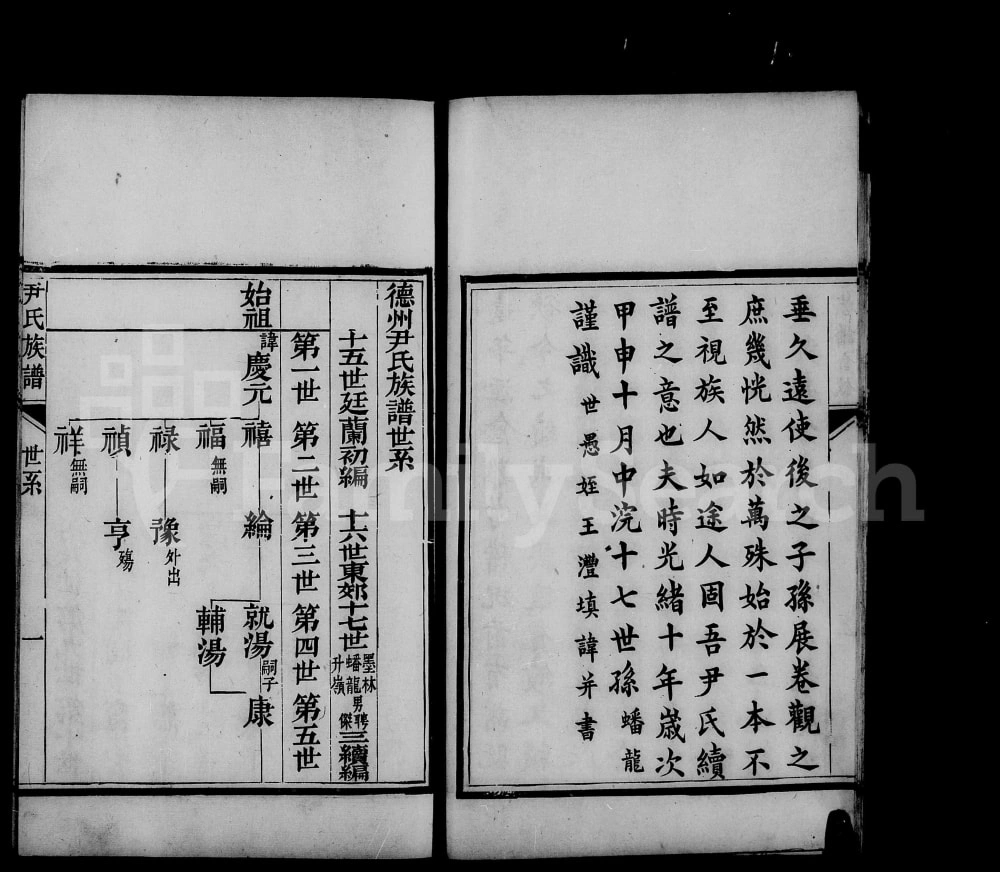 垂久遠使後之子孫展卷觀之
庶幾恍然於萬殊始於一本不
至視族人如途人固吾尹氏續
譜之意也夫時光緒十年歲次
甲申十月中浣十七世孫蟠龍
謹識 世愚姪王灃填諱并書
德州尹氏族譜世系
十五世廷蘭初編 十六世東郊十七世墨林蟠龍升嶺男聘傑三續編
第一世 第二世 第三世 第四世 第五世
始祖諱慶元 禧 綸 就湯嗣子 康
福無嗣 輔湯
祿 豫外出
禎 亨殤
祥無嗣
尹氏族譜 世系 一
FamilySearch